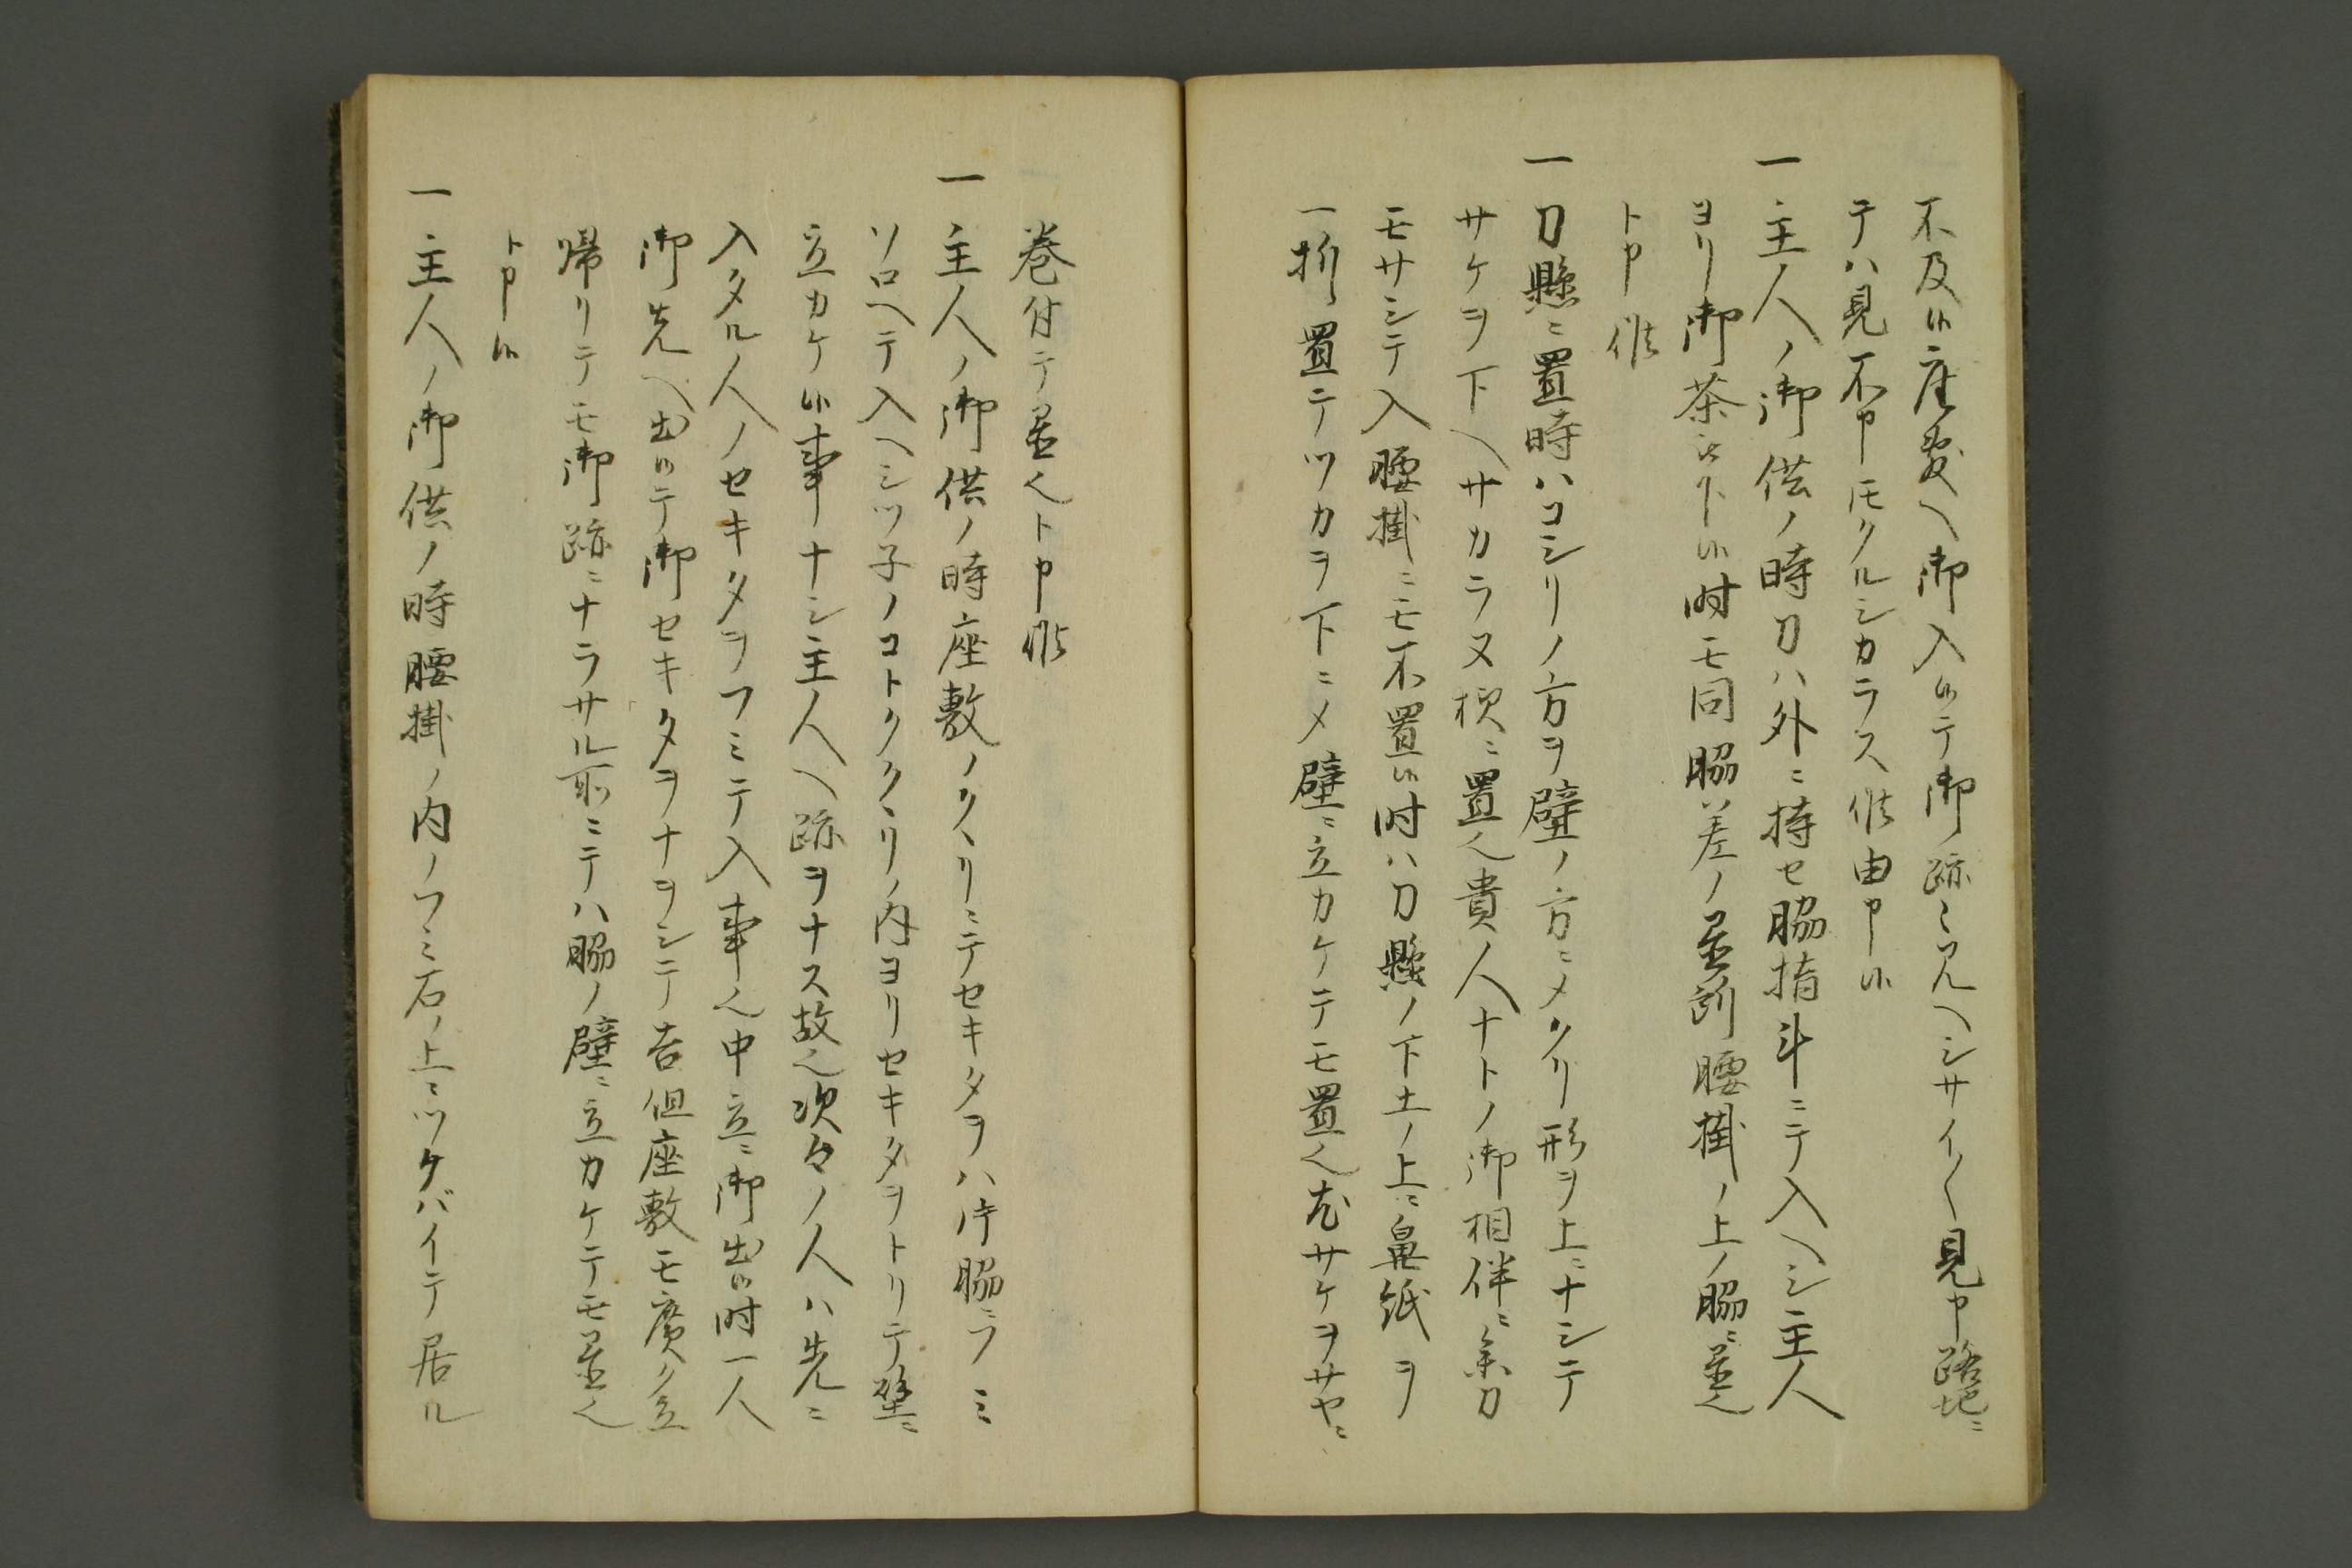 不及候座敷ヘ御入候テ御跡ミアルヘシサイ〱見申路地ニ
テハ見不申𪜈クルシカラス候由申候
一主人ノ御供ノ時刀ハ外ニ持セ脇指斗ニテ入ヘシ主人
ヨリ御茶被下候時モ同脇差ノ置所腰掛ノ上ノ脇ニ置ヘ
ト申候
一刀懸ニ置時ハコシリノ方ヲ壁ノ方ニメクリ形ヲ上ニナシテ
サケヲ下ヘサカラヌ様ニ置ヘ貴人ナトノ御相伴ニ参刀
モサシテ入腰掛ニモ不置候時ハ刀懸ノ下土ノ上ニ鼻紙ヲ
一折置テツカヲ下ニメ壁ニ立カケテモ置ヘ尤サケヲサヤニ
巻付テ置ヘト申候
一主人ノ御供ノ時座敷ノクヽリニテセキタヲハ片脇ニフミ
ソロヘテ入ヘシツ子ノコトククヽリノ内ヨリセキタヲトリテ壁ニ
立カケ候事ナシ主人ヘ跡ヲナス故ヘ次々ノ人ハ先ニ
入タル人ノセキタヲフミテ入事ヘ中立ニ御出候時一人
御先ヘ出候テ御セキタヲナヲシテ吉但座敷モ廣ク立
帰リテモ御跡ニナラサル所ニテハ脇ノ壁ニ立カケテモ置ヘ
ト申候
一主人ノ御供ノ時腰掛ノ内ノフミ石ノ上ニツクバイテ居ル